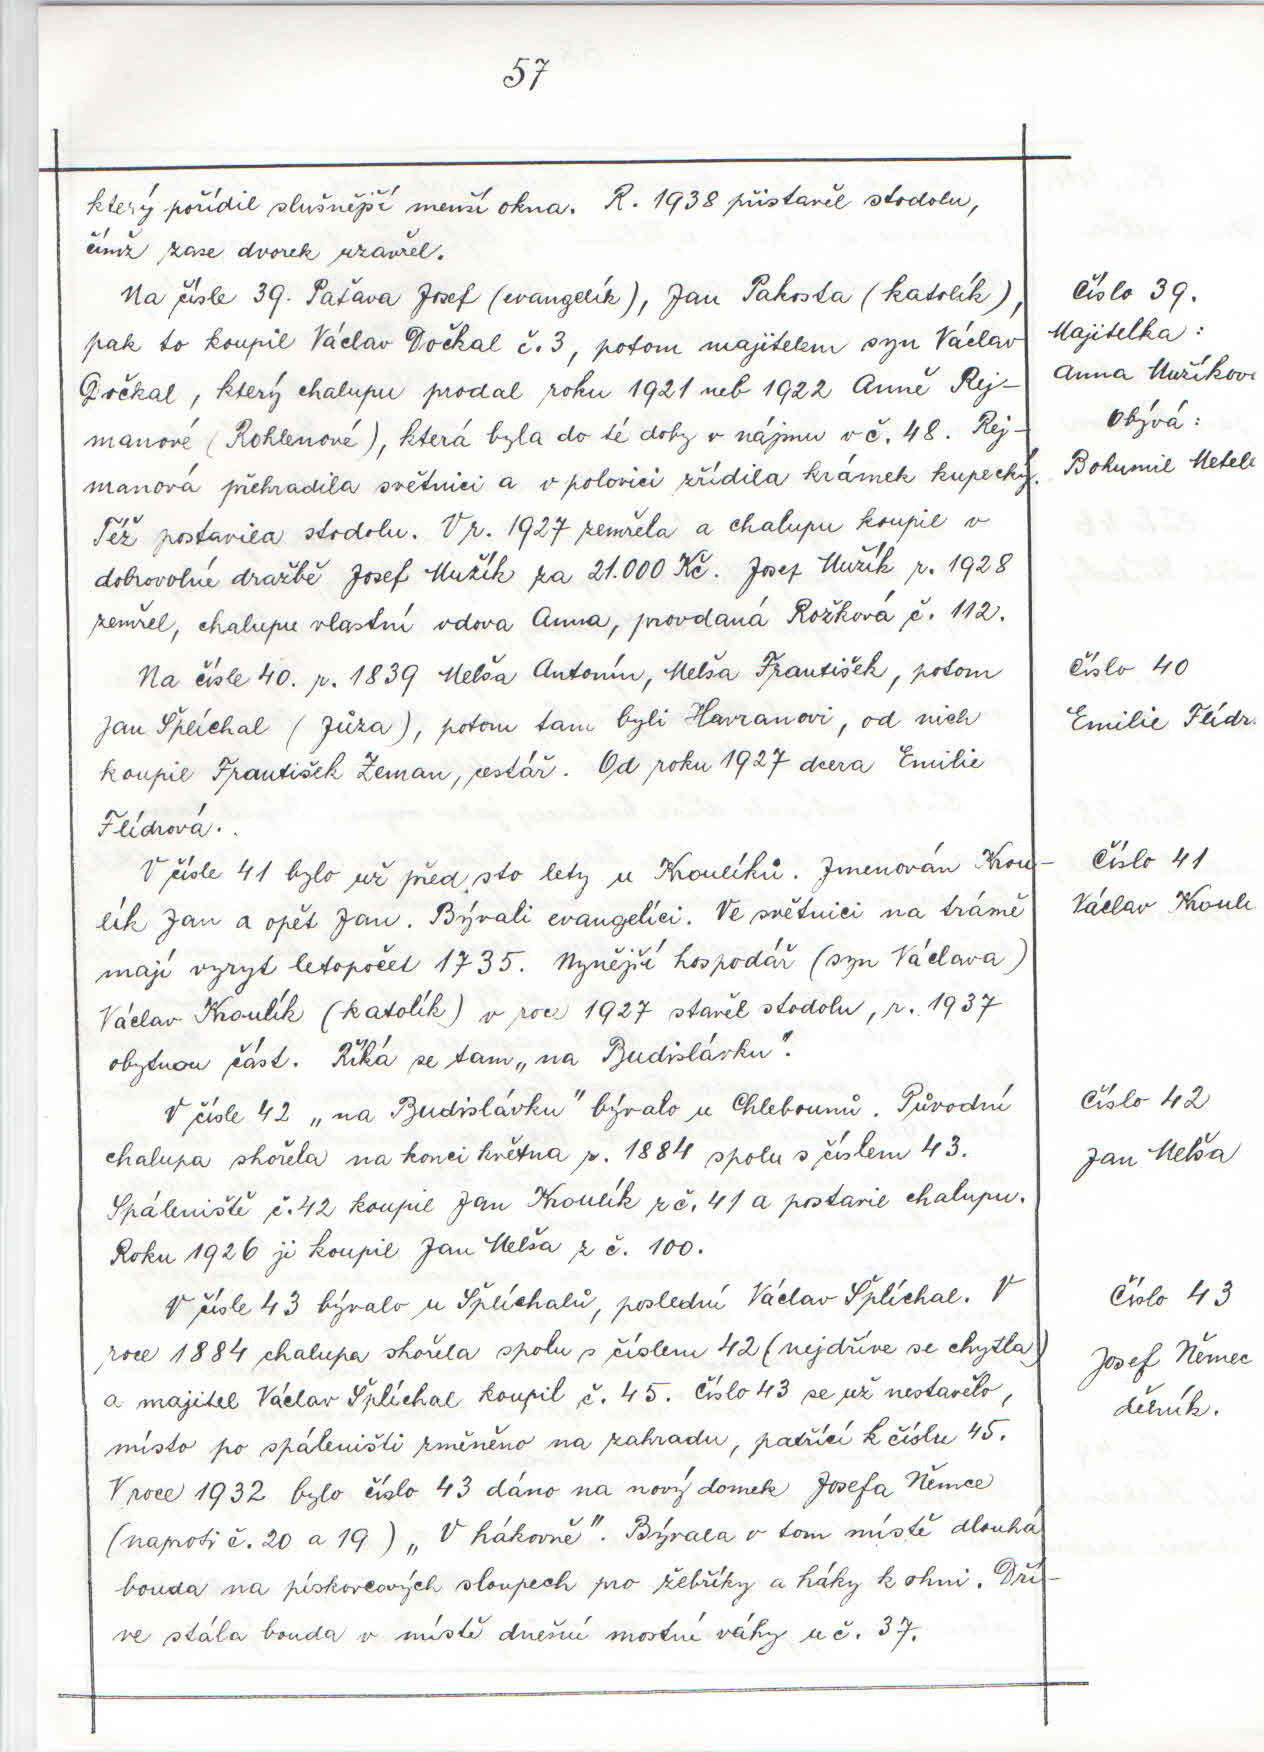 57
který pořídil slušnější menší okna. R. 1938 přistavěl stodolu,
čímž zase dvorek uzavřel.
Na čísle 39. Paťava Josef (evangelík), Jan Pakosta (katolík),
pak to koupil Václav Dočkal č. 3, potom majitelem syn Václav
Dočkal, který chalupu prodal roku 1921 neb 1922 Anně Rej-
manové (Rohlenové), která byla do té doby v nájmu v č. 48. Rej-
manová přehradila světnici a v polovici zřídila krámek kupecký.
Též postavila stodolu. V r. 1927 zemřela a chalupu koupil v
dobrovolné dražbě Josef Mužík za 21.000 Kč. Josef Mužík r. 1928
zemřel, chalupu vlastní vdova Anna, provdaná Rožková č. 112.
Na čísle 40. r. 1839 Melša Antonín, Melša František, potom
Jan Šplíchal (Jůza), potom tam byli Havranovi, od nich
koupil František Zeman, cestář. Od roku 1927 dcera Emilie
Flídrová..
V čísle 41 bylo už před sto lety u Kroulíků. Jmenován Krou-
lík Jan a opět Jan. Bývali evangelíci. Ve světnici na trámě
mají vyryt letopočet 1735. Nynější hospodář (syn Václava)
Václav Kroulík (katolík) v roce 1927 stavěl stodolu, r. 1937
obytnou část. Říká se tam „na Budislávku".
V čísle 42 „na Budislávku" bývalo u Chlebounů. Původní
chalupa shořela na konci května r. 1884 spolu s číslem 43.
Spáleniště č. 42 koupil Jan Kroulík z č. 41 a postavil chalupu.
Roku 1926 ji koupil Jan Melša z č. 100.
V čísle 43 bývalo u Šplíchalů, poslední Václav Šplíchal. V
roce 1884 chalupa shořela spolu s číslem 42 (nejdříve se chytla)
a majitel Václav Šplíchal koupil č. 45. Číslo 43 se už nestavělo,
místo po spáleništi změněno na zahradu, patřící k číslu 45.
V roce 1932 bylo číslo 43 dáno na nový domek Josefa Němce
(naproti č. 20 a 19) „V hákovně". Bývala v tom místě dlouhá
bouda na pískovcových sloupech pro žebříky a háky k ohni. Dří-
ve stála bouda v místě dnešní mostní váhy u č. 37.
Číslo 39.
Majitelka:
Anna Mužíkov
Obývá:
Bohumil Metel
Číslo 40
Emilie Flídr
Číslo 41
Václav Kroul
Číslo 42
Jan Melša
Číslo 43
Josef Němec
dělník.